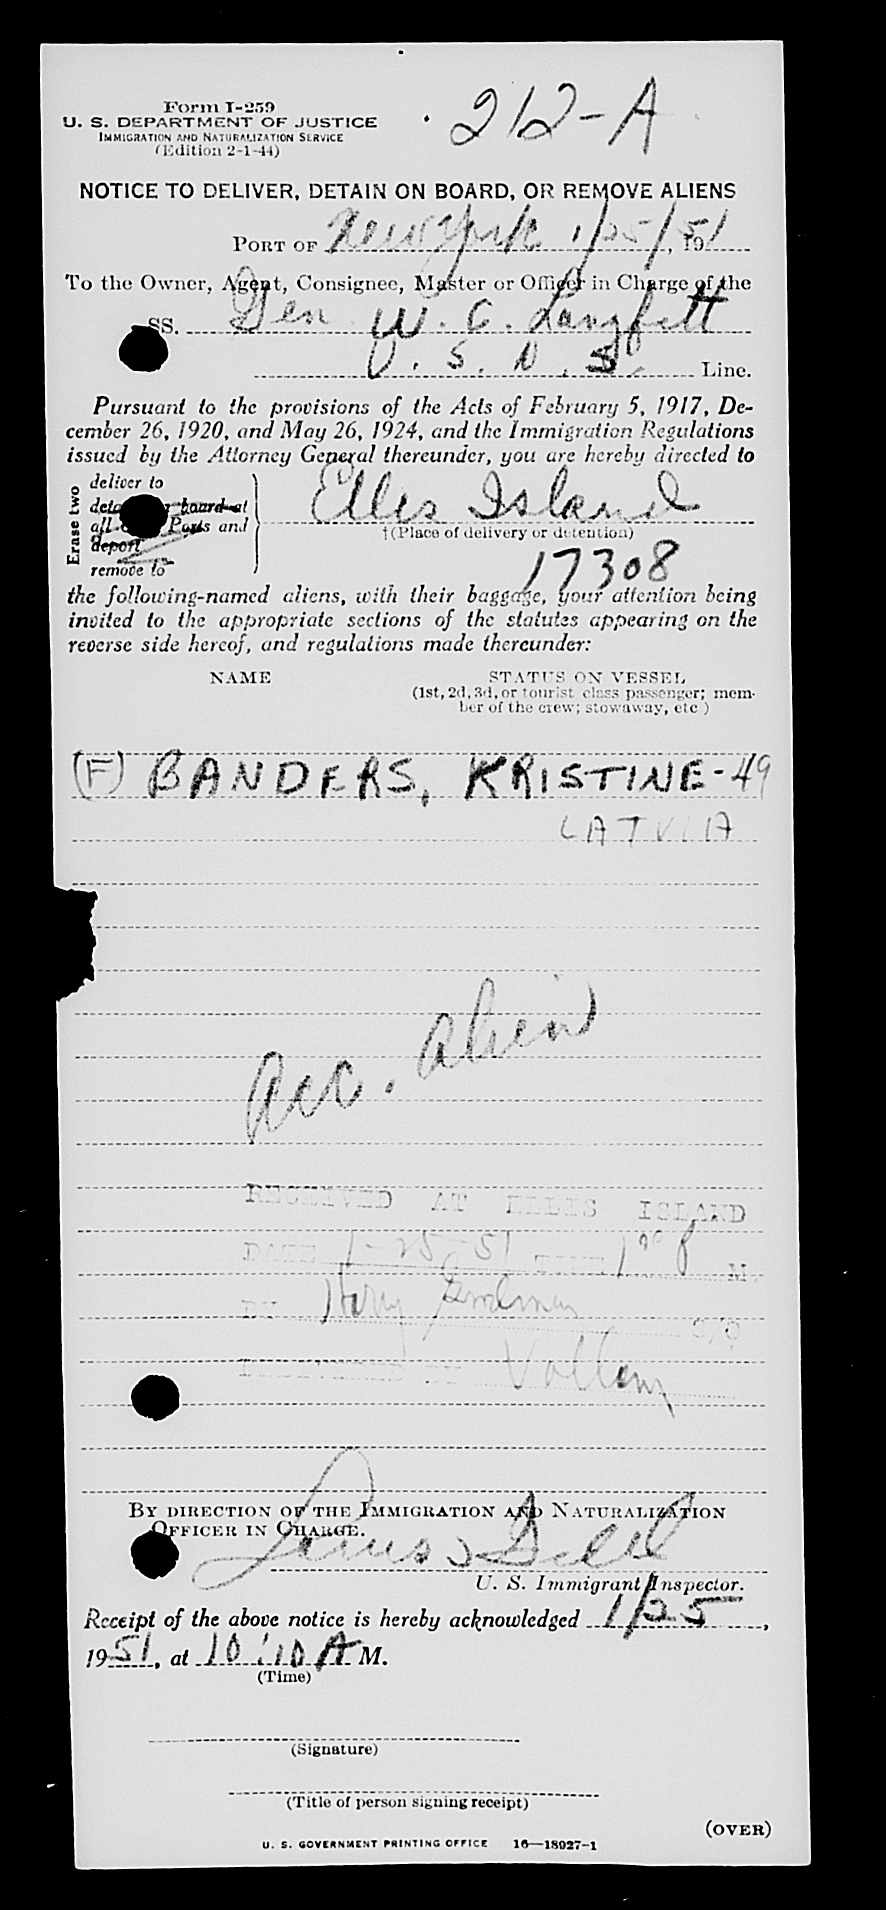 Form I-259
U. S. DEPARTMENT OF JUSTICE
IMMIGRATION AND NATURALIZATION SERVICE
(Edition 2-1-44)
212-A
NOTICE TO DELIVER, DETAIN ON BOARD, OR REMOVE ALIENS
PORT OF New York 1/25/51, 19
To the Owner, Agent, Consignee, Master or Officer in Charge of the
SS. Gen W. C. Langfitt
U. S. N. S. Line.
Pursuant to the provisions of the Acts of February 5, 1917, De-
cember 26, 1920, and May 26, 1924, and the Immigration Regulations
issued by the Attorney General thereunder, you are hereby directed to
Erase two
deliver to
board at
all Ports and
deport
remove to
Ellis Island
†(Place of delivery or detention)
17308
the following-named aliens, with their baggage, your attention being
invited to the appropriate sections of the statutes appearing on the
reverse side hereof, and regulations made thereunder:
NAME STATUS ON VESSEL
(1st, 2d, 3d, or tourist class passenger; mem-
ber of the crew; stowaway, etc.)
(F) BANDERS, KRISTINE - 49
LATVIA
Acc. Alien
RECEIVED AT ELLIS ISLAND
DATE 1-25-51 TIME 1 P M.
BY Harry
DELIVERED BY
BY DIRECTION OF THE IMMIGRATION AND NATURALIZATION
OFFICER IN CHARGE.
U. S. Immigrant Inspector.
Receipt of the above notice is hereby acknowledged 1/25,
1951, at 10:10 A M.
(Time)
(Signature)
(Title of person signing receipt)
(OVER)
U. S. GOVERNMENT PRINTING OFFICE 16—18927-1